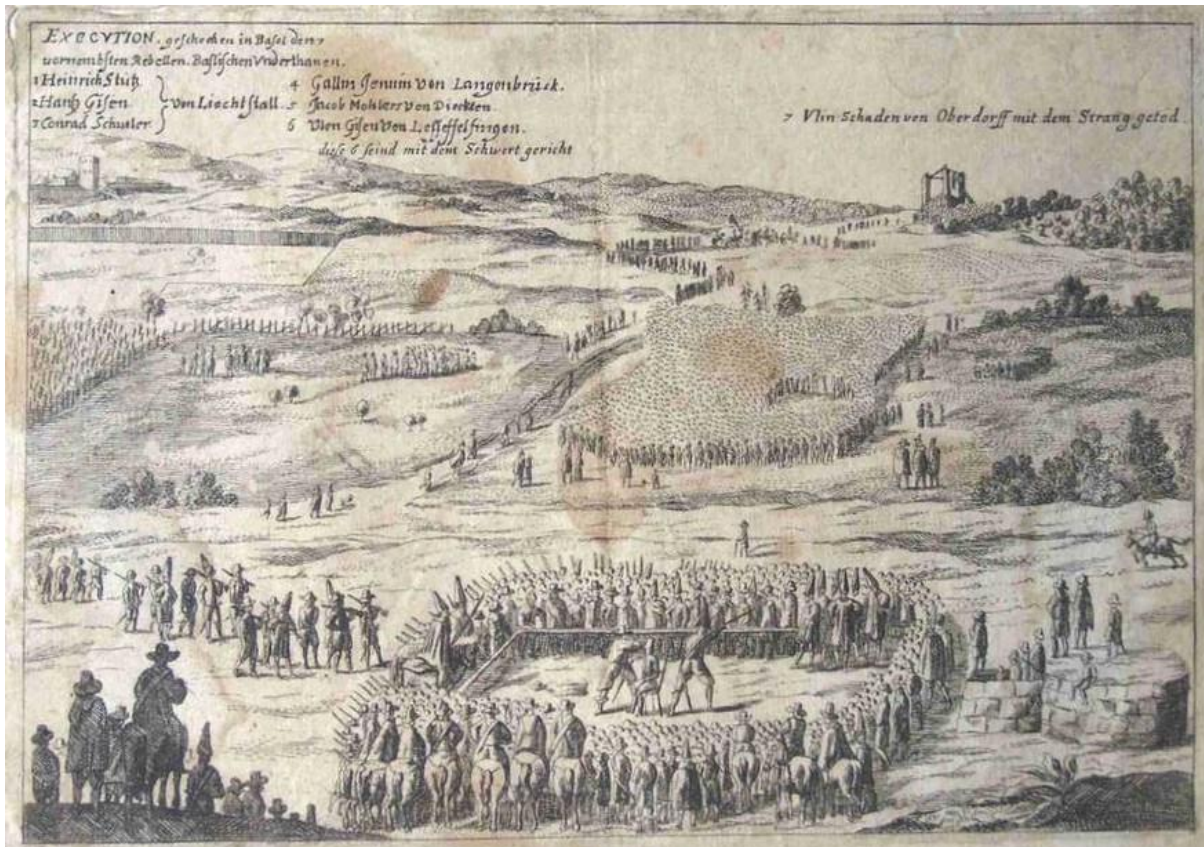 EXECVTION. geschechen in Basel den 7
vornembsten Rebellen. Baslischen Vnderthanen.
1 Heinrich Stutz
2 Hanß Gisen
3 Conrad Schuler
von Liechstall.
4 Gallin Jenuin von Langenbrück.
5 Jacob Mohlers von Dieckten.
6 Vlin Gisen von Leiffelfingen.
diese 6 seind mit dem Schwert gericht
7 Vlin Schaden von Oberdorff mit dem Strang getöd.